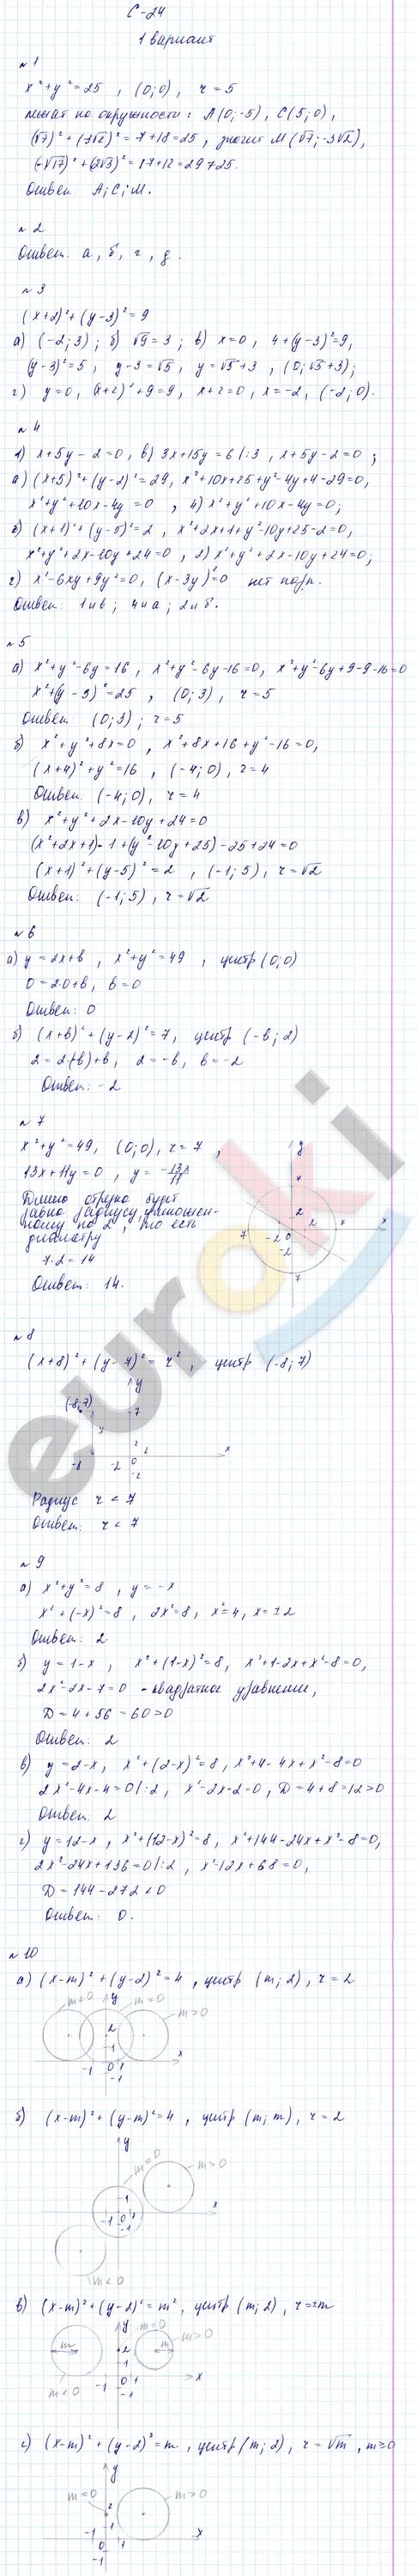 С-24
1 вариант
№ 1
x² + y² = 25 , (0; 0) , r = 5
лежат на окружности: A(0; -5), C(5; 0),
(√7)² + (-3√2)² = 7 + 18 = 25 , значит M(√7; -3√2),
(-√17)² + (2√3)² = 17 + 12 = 29 ≠ 25.
Ответ: A; C; M.
№ 2
Ответ: а, б, г, д.
№ 3
(x+2)² + (y-3)² = 9
а) (-2; 3) ; б) √9 = 3 ; в) x = 0 , 4 + (y-3)² = 9,
(y-3)² = 5 , y - 3 = √5 , y = √5 + 3 , (0; √5 + 3) ;
г) y = 0 , (x+2)² + 9 = 9 , x + 2 = 0 , x = -2 , (-2; 0).
№ 4
1) x + 5y - 2 = 0 , в) 3x + 15y = 6 | : 3 , x + 5y - 2 = 0 ;
а) (x+5)² + (y-2)² = 29, x² + 10x + 25 + y² - 4y + 4 - 29 = 0,
x² + y² + 10x - 4y = 0 , 4) x² + y² + 10x - 4y = 0;
б) (x+1)² + (y-5)² = 2 , x² + 2x + 1 + y² - 10y + 25 - 2 = 0,
x² + y² + 2x - 10y + 24 = 0 , 2) x² + y² + 2x - 10y + 24 = 0;
г) x² - 6xy + 9y² = 0 , (x - 3y)² = 0 нет
Ответ: 1 и в ; 4 и а ; 2 и б .
№ 5
а) x² + y² - 6y = 16 , x² + y² - 6y - 16 = 0 , x² + y² - 6y + 9 - 9 - 16 = 0
x² + (y - 3)² = 25 , (0; 3) , r = 5
Ответ: (0; 3) ; r = 5
б) x² + y² + 8x = 0 , x² + 8x + 16 + y² - 16 = 0,
(x+4)² + y² = 16 , (-4; 0) , r = 4
Ответ: (-4; 0) , r = 4
в) x² + y² + 2x - 10y + 24 = 0
(x² + 2x + 1) - 1 + (y² - 10y + 25) - 25 + 24 = 0
(x+1)² + (y-5)² = 2 , (-1; 5) , r = √2
Ответ: (-1; 5) , r = √2
№ 6
а) y = 2x + b , x² + y² = 49 , центр (0; 0)
0 = 2·0 + b , b = 0
Ответ: 0
б) (x+b)² + (y-2)² = 7, центр (-b; 2)
2 = 2·(-b) + b , 2 = -b , b = -2
Ответ: -2
№ 7
x² + y² = 49, (0; 0), r = 7 ,
13x + 11y = 0 , y = -13x/11
Длина отрезка будет
равна радиусу, умножен-
ному на 2, то есть
диаметру
7·2 = 14
Ответ: 14.
y
2
x
7
-2 0
-2
7
№ 8
(x+8)² + (y-7)² = r² , центр (-8; 7)
y
(-8; 7)
7
7
2
2
x
-8
-2
0
-2
Радиус r < 7
Ответ: r < 7
№ 9
а) x² + y² = 8 , y = -x
x² + (-x)² = 8 , 2x² = 8 , x² = 4 , x = ±2
Ответ: 2
б) y = 1 - x , x² + (1-x)² = 8 , x² + 1 - 2x + x² - 8 = 0,
2x² - 2x - 7 = 0 - квадратное уравнение,
D = 4 + 56 = 60 > 0
Ответ: 2
в) y = 2 - x , x² + (2-x)² = 8 , x² + 4 - 4x + x² - 8 = 0
2x² - 4x - 4 = 0 | : 2 , x² - 2x - 2 = 0 , D = 4 + 8 = 12 > 0
Ответ: 2
г) y = 12 - x , x² + (12-x)² = 8 , x² + 144 - 24x + x² - 8 = 0,
2x² - 24x + 136 = 0 | : 2 , x² - 12x + 68 = 0 ,
D = 144 - 272 < 0
Ответ: 0.
№ 10
а) (x-m)² + (y-2)² = 4 , центр (m; 2) , r = 2
m<0 y m=0
m>0
2
1
x
-1 0 1
-1
б) (x-m)² + (y-m)² = 4 , центр (m; m) , r = 2
y
m=0
m>0
1
x
-1 0 1
-1
m<0
в) (x-m)² + (y-2)² = m² , центр (m; 2) , r = m
y m=0
m>0
m
2
m
1
0 1
x
m<0
-1
-1
г) (x-m)² + (y-2)² = m , центр (m; 2) , r = √m , m ≥ 0
y
m=0
m>0
2
1
-1
x
0
1
-1
euroki